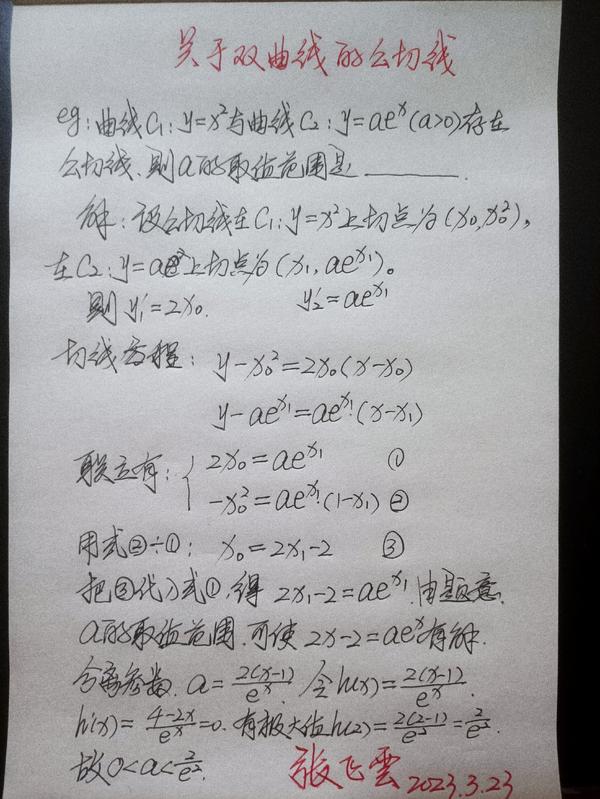 关于双曲线的公切线
eg:曲线C₁:y=x²与曲线C₂:y=aeˣ(a>0)存在
公切线、则a的取值范围是______.
解:设公切线在C₁:y=x²上切点为(x₀,x₀²),
在C₂:y=aeˣ上切点为(x₁,ae^{x₁})。
则y₁'=2x₀. y₂'=ae^{x₁}
切线方程: y-x₀²=2x₀(x-x₀)
y-ae^{x₁}=ae^{x₁}(x-x₁)
联立有: { 2x₀=ae^{x₁} ①
-x₀²=ae^{x₁}(1-x₁) ②
用式②÷①: x₀=2x₁-2 ③
把③代入式①,得 2x₁-2=ae^{x₁}.由题意.
a的取值范围.可使2x-2=aeˣ有解.
分离参数.a=2(x-1)/eˣ.令h(x)=2(x-1)/eˣ.
h'(x)=(4-2x)/eˣ=0.有极大值h(2)=2(2-1)/e²=2/e².
故0<a<2/e².
张飞雲2023.3.23